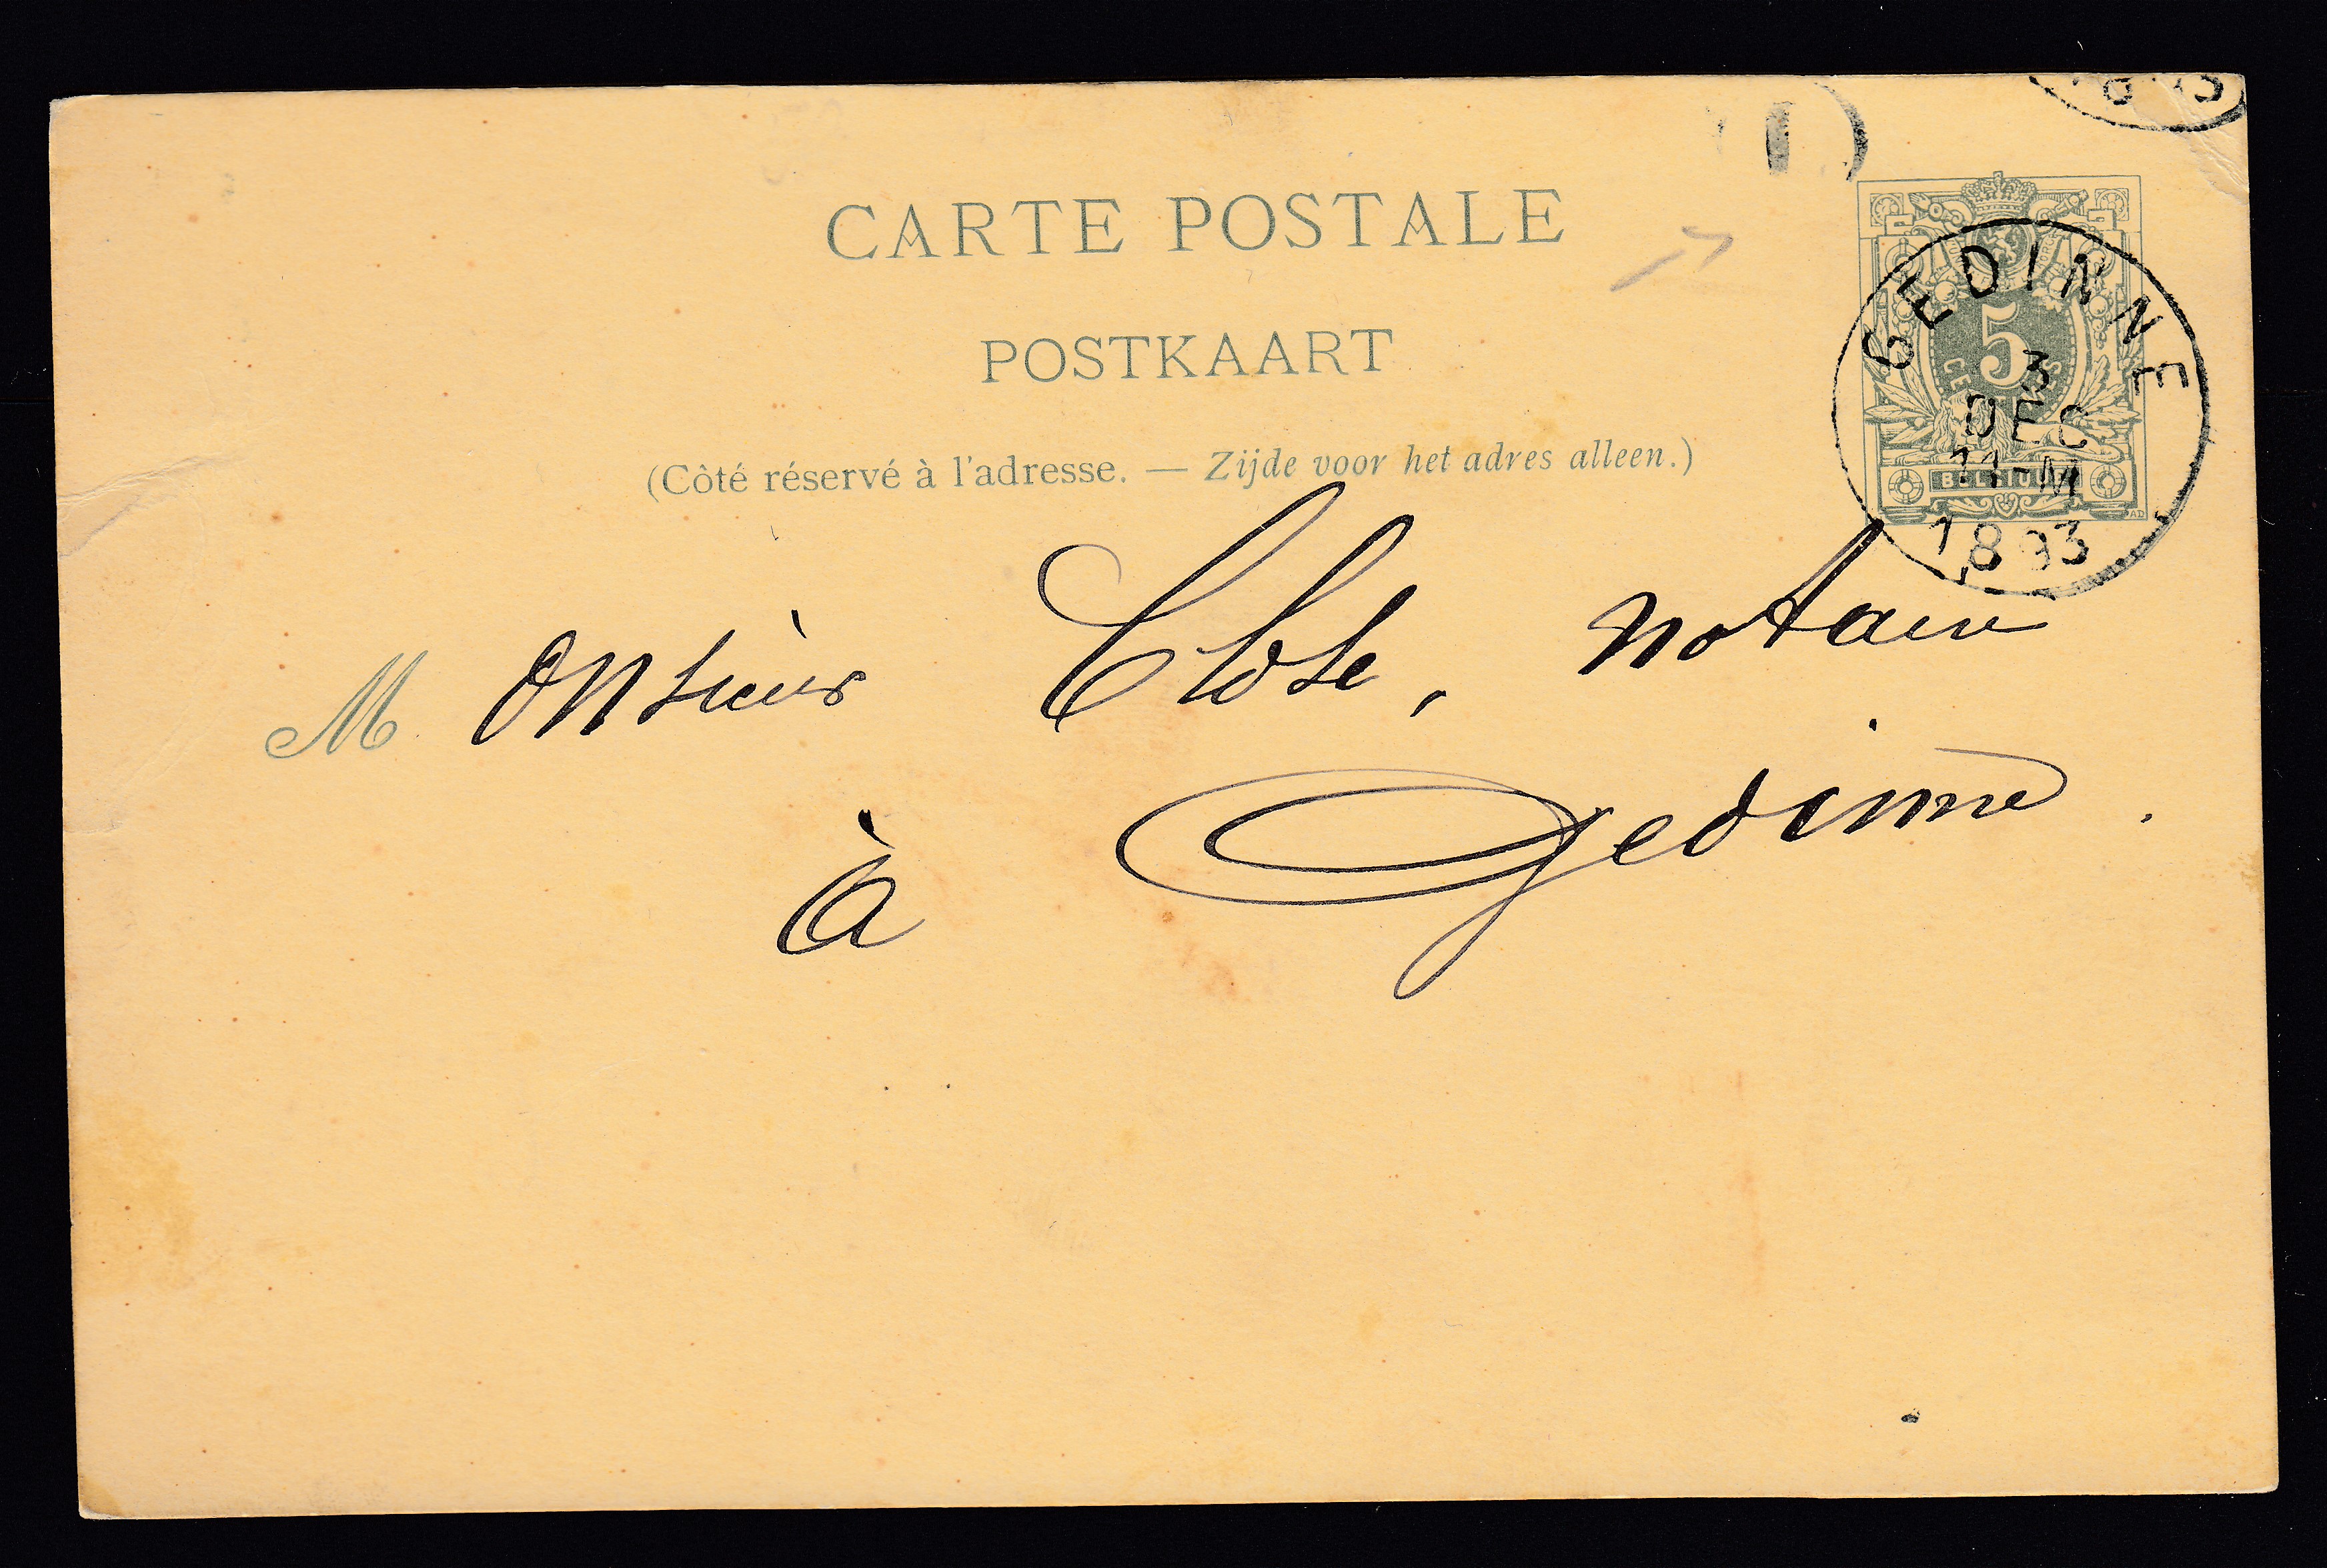 CARTE POSTALE
POSTKAART
(Côté réservé à l'adresse. — Zijde voor het adres alleen.)
5
BELGIQUE
GEDINNE
3
DEC
11-M
1893
M onsieur Close, notaire
à Gedinne.